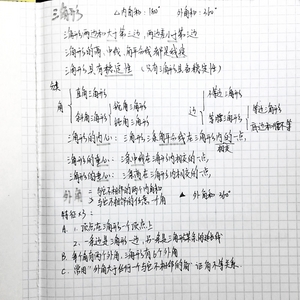 三角形 △内角和:180° 外角和:360°
三角形两边和大于第三边,两边差小于第三边
三角形的高、中线、角平分线都是线段
三角形具有稳定性 (只有三角形具有稳定性)
分类
角 直角三角形 边 不等边三角形
斜角三角形 锐角三角形 等腰三角形 等边三角形
钝角三角形 底边和腰不等
三角形的内心:三角形三条角平分线在三角形内的一点,
相交
三角形的重心:三条中线在三角形内相交的一点,
三角形的垂心:三条高在三角形内相交的一点,
外角 = 与它不相邻的两个内角和 △ 外角和360°
> 与它不相邻的任意一个角
特征×3:
A. 1、顶点在三角形一个顶点上
2、一条边是三角形一边,另一条是三角形某条的延长线
B. 每个角有两个外角,三角形有6个外角
C. 常用"外角大于任何一个与它不相邻的角"证角不等关系